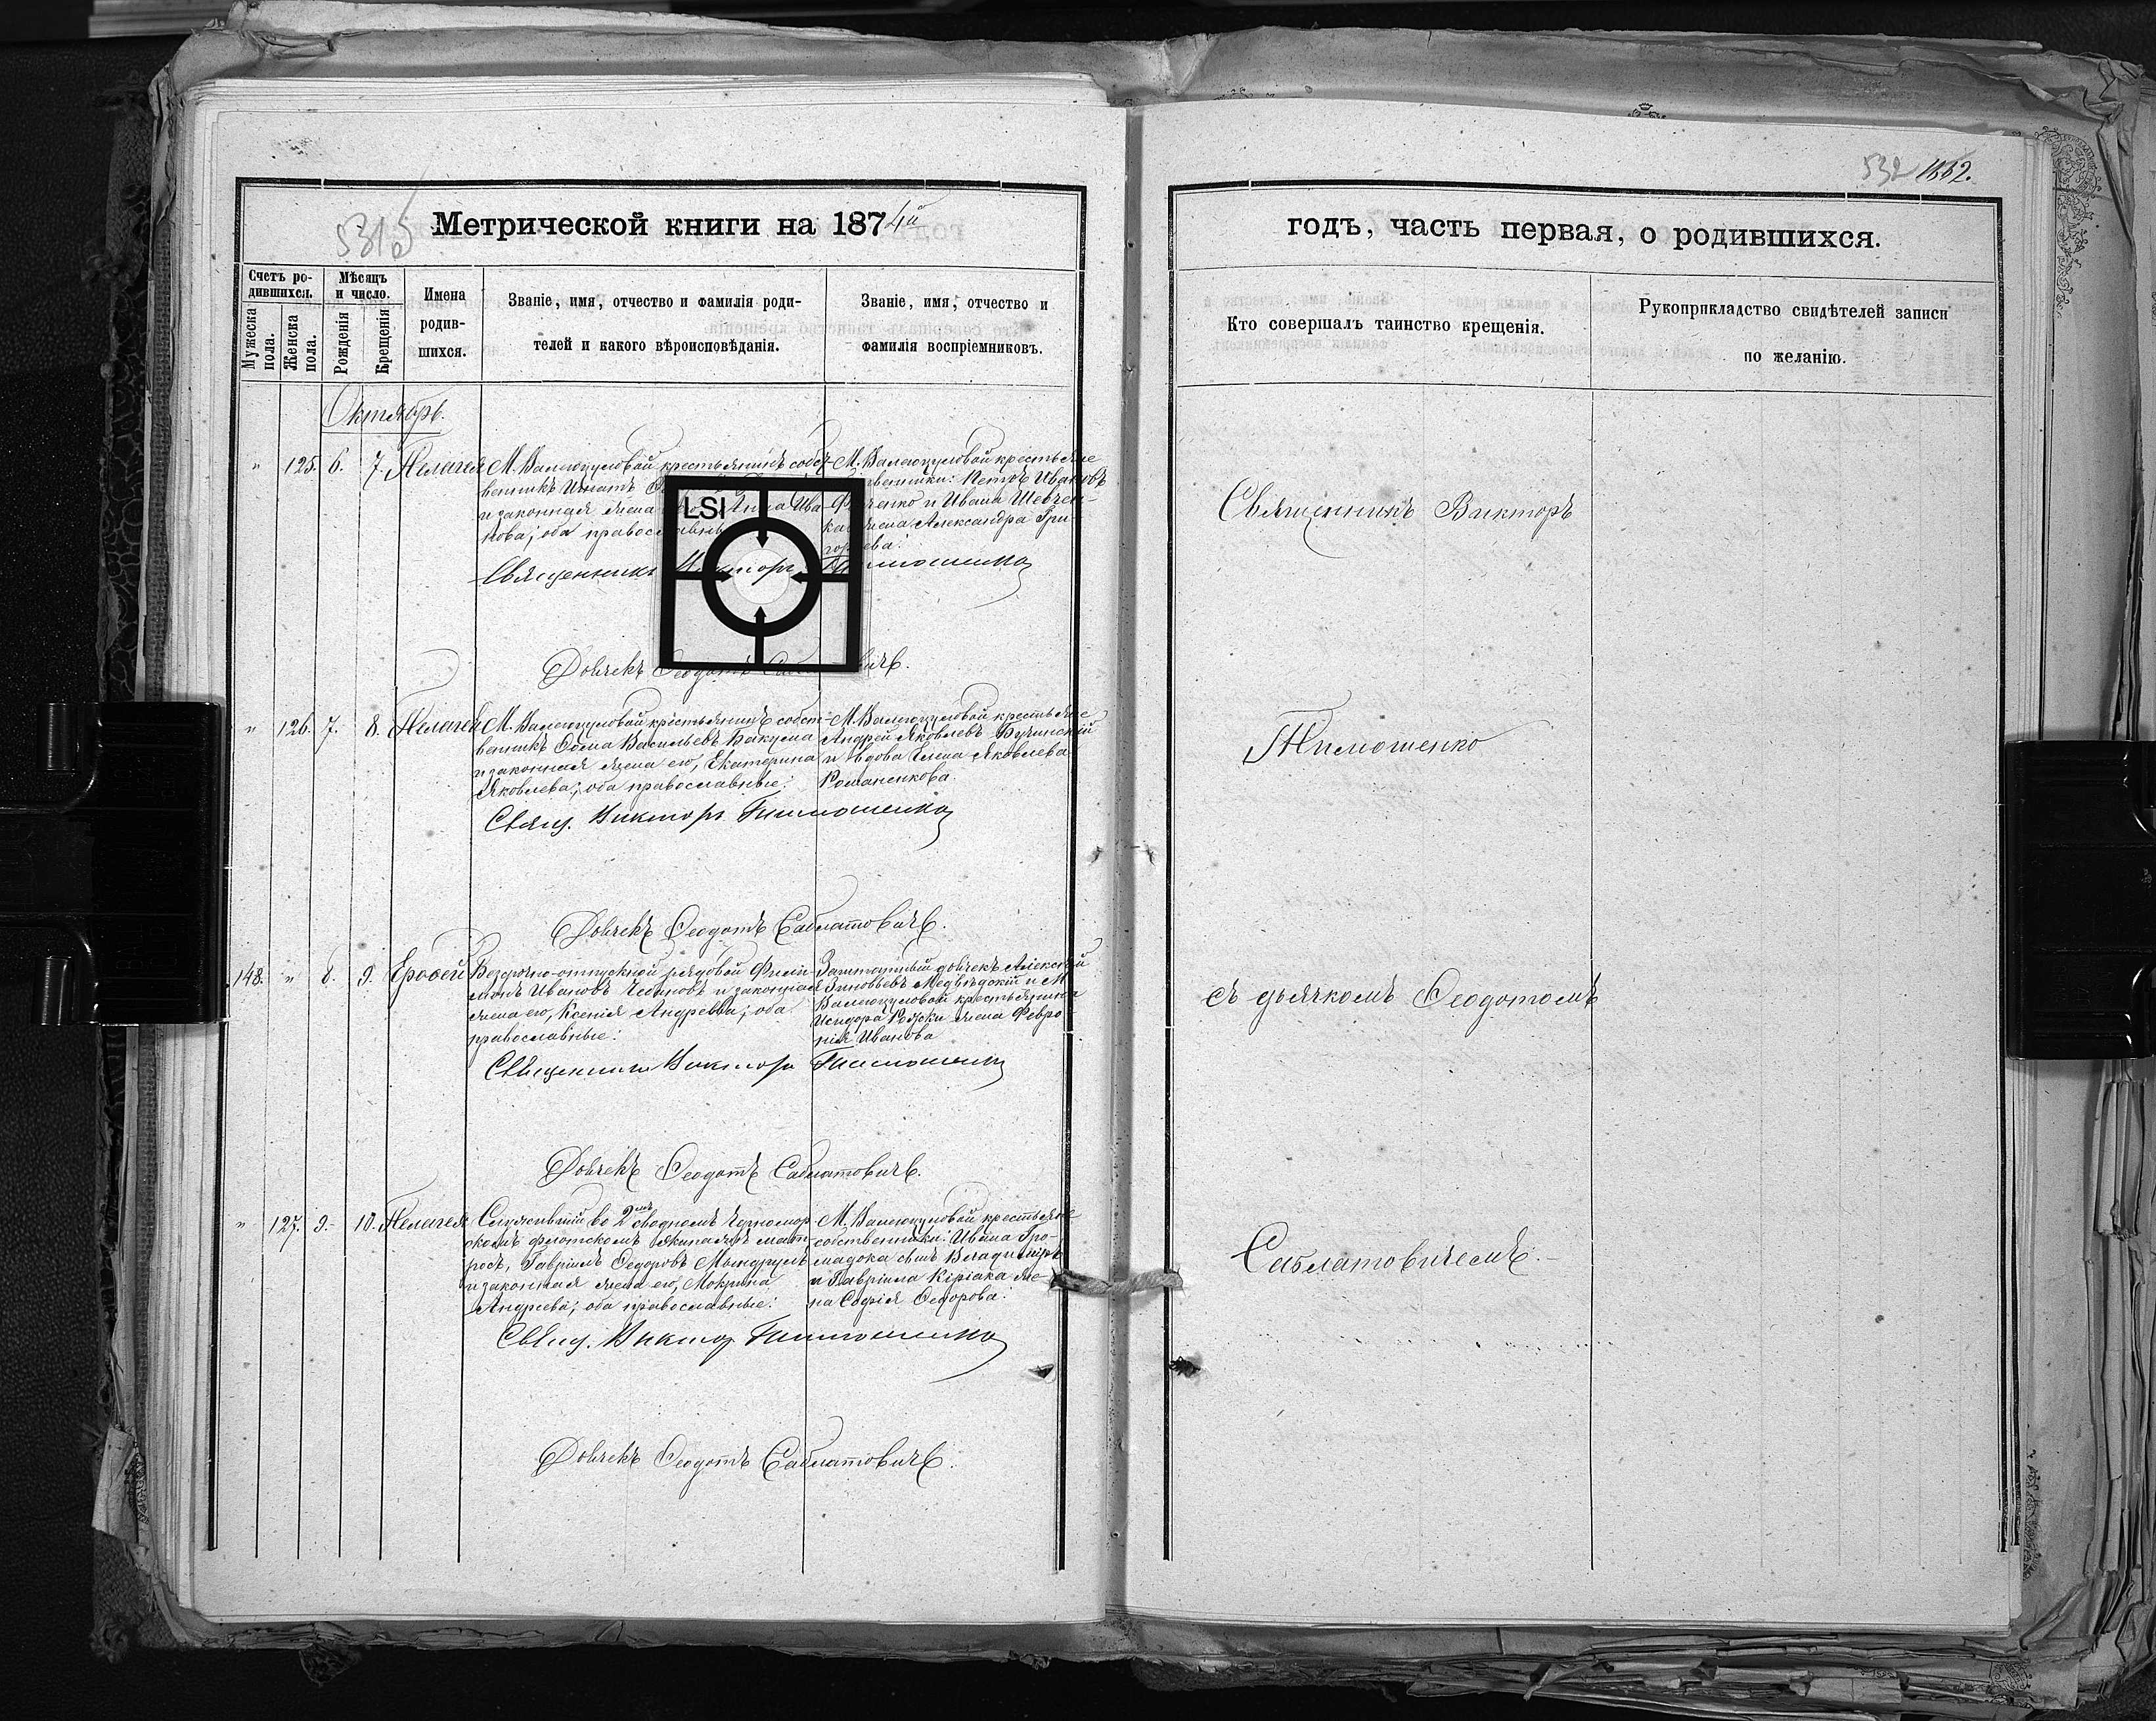 531б
Метрической книги на 1874й
Счетъ ро-
дившихся.
Мужеска пола.
Женска пола.
Мѣсяцъ
и число.
Рожденія
Крещенія
Имена
родив-
шихся.
Званіе, имя, отчество и фамилія роди-
телей и какого вѣроисповѣданія.
Званіе, имя, отчество и
фамилія воспріемниковъ.
Октябрь.
" 125. 6. 7. Пелагея
М. Валегоцуловой крестьянинъ собст-
венникъ Игнатъ
и законная жена его Анна Ива-
нова; оба православные
М. Валегоцуловой крестьяне
собственники: Петръ Ивановъ
и Ивана Шевчен-
ка жена Александра Гри-
горьева.
Священникъ Викторъ Тимошенко
LSI
Дьячекъ Ѳеодотъ Саблатовичъ.
" 126. 7. 8. Пелагея
М. Валегоцуловой крестьянинъ собст-
венникъ Ѳома Васильевъ Бакума
и законная жена его, Екатерина
Яковлева; оба православные:
М. Валегоцуловой крестьяне
Андрей Яковлевъ Бучинскій
и вдова Елена Яковлева
Романенкова.
Свящ. Викторъ Тимошенко
Дьячекъ Ѳеодотъ Саблатовичъ.
148. " 8. 9. Ероѳей
Безсрочно-отпускной рядовой Фили-
монъ Ивановъ и законная
жена его, Ксенія Андреева; оба
православные:
Заштатный дьячекъ Алексѣй
Зиновьевъ Медвѣдскій и М.
Валегоцуловой крестьянина
Исидора жена Февро-
нія Иванова
Священникъ Викторъ Тимошенко
Дьячекъ Ѳеодотъ Саблатовичъ.
" 127. 9. 10. Пелагея
Служившій во 2мъ сводномъ Черномор-
скомъ флотскомъ экипажѣ мат-
росъ, Гавріилъ Ѳедоровъ Мындрулъ
и законная жена его, Мокрина
Андреева; оба православные:
М. Валегоцуловой крестьяне
собственники: Ивана Гро-
мадока сынъ Владиміръ
и Гавріила Кіріака же-
на Софія Ѳедорова:
Свящ. Викторъ Тимошенко
Дьячекъ Ѳеодотъ Саблатовичъ.
532
годъ, часть первая, о родившихся.
Кто совершалъ таинство крещенія.
Рукоприкладство свидѣтелей записи
по желанію.
Священникъ Викторъ
Тимошенко
съ дьячкомъ Ѳеодотомъ
Саблатовичемъ.